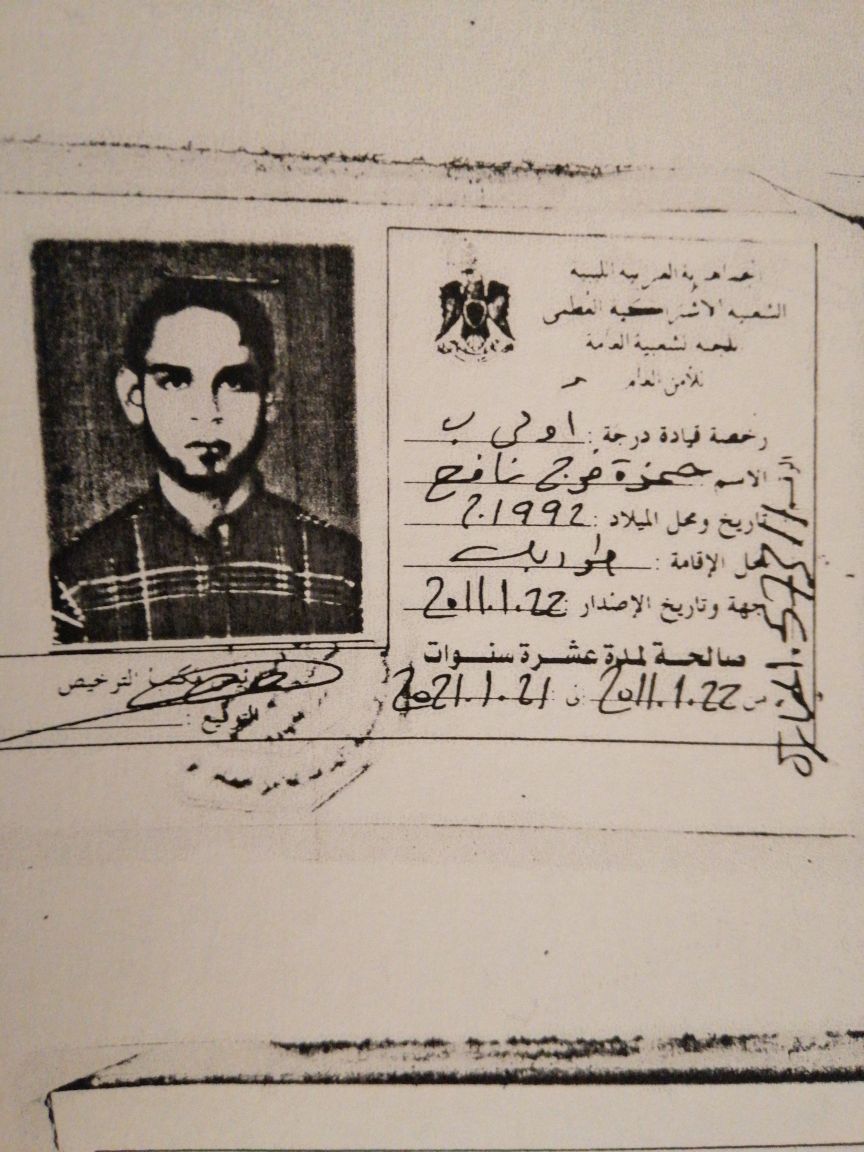 الجماهيرية العربية الليبية
الشعبية الاشتراكية العظمى
اللجنة الشعبية العامة
للأمن العام
رخصة قيادة درجة : اولى ب
الاسم : حمزة فرج نافع
تاريخ ومحل الميلاد : 1992
محل الإقامة :
جهة وتاريخ الإصدار : 2011.1.22
صالحة لمدة عشرة سنوات
من 2011.1.22 الى 2021.1.21
الترخيص
التوقيع :